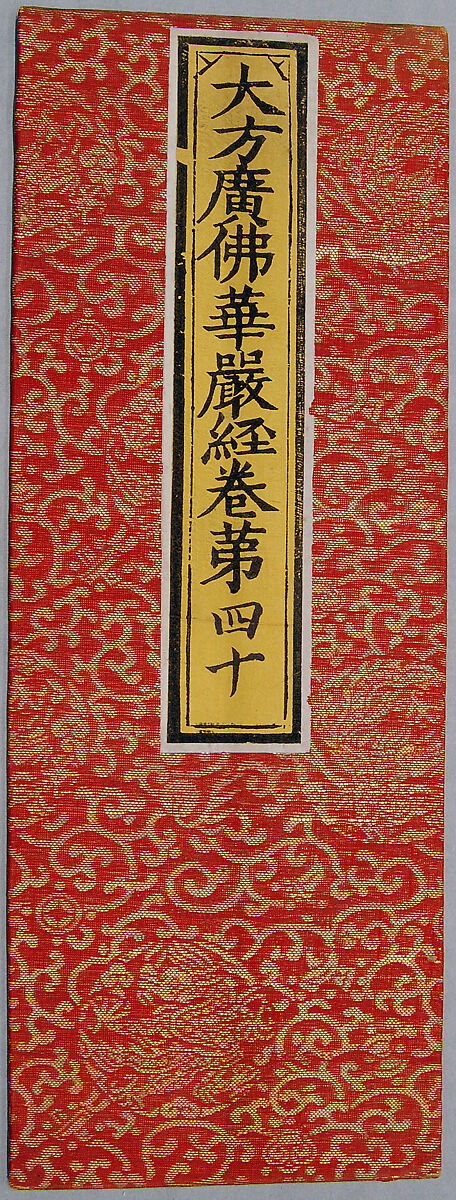 大方廣佛華嚴經卷第四十